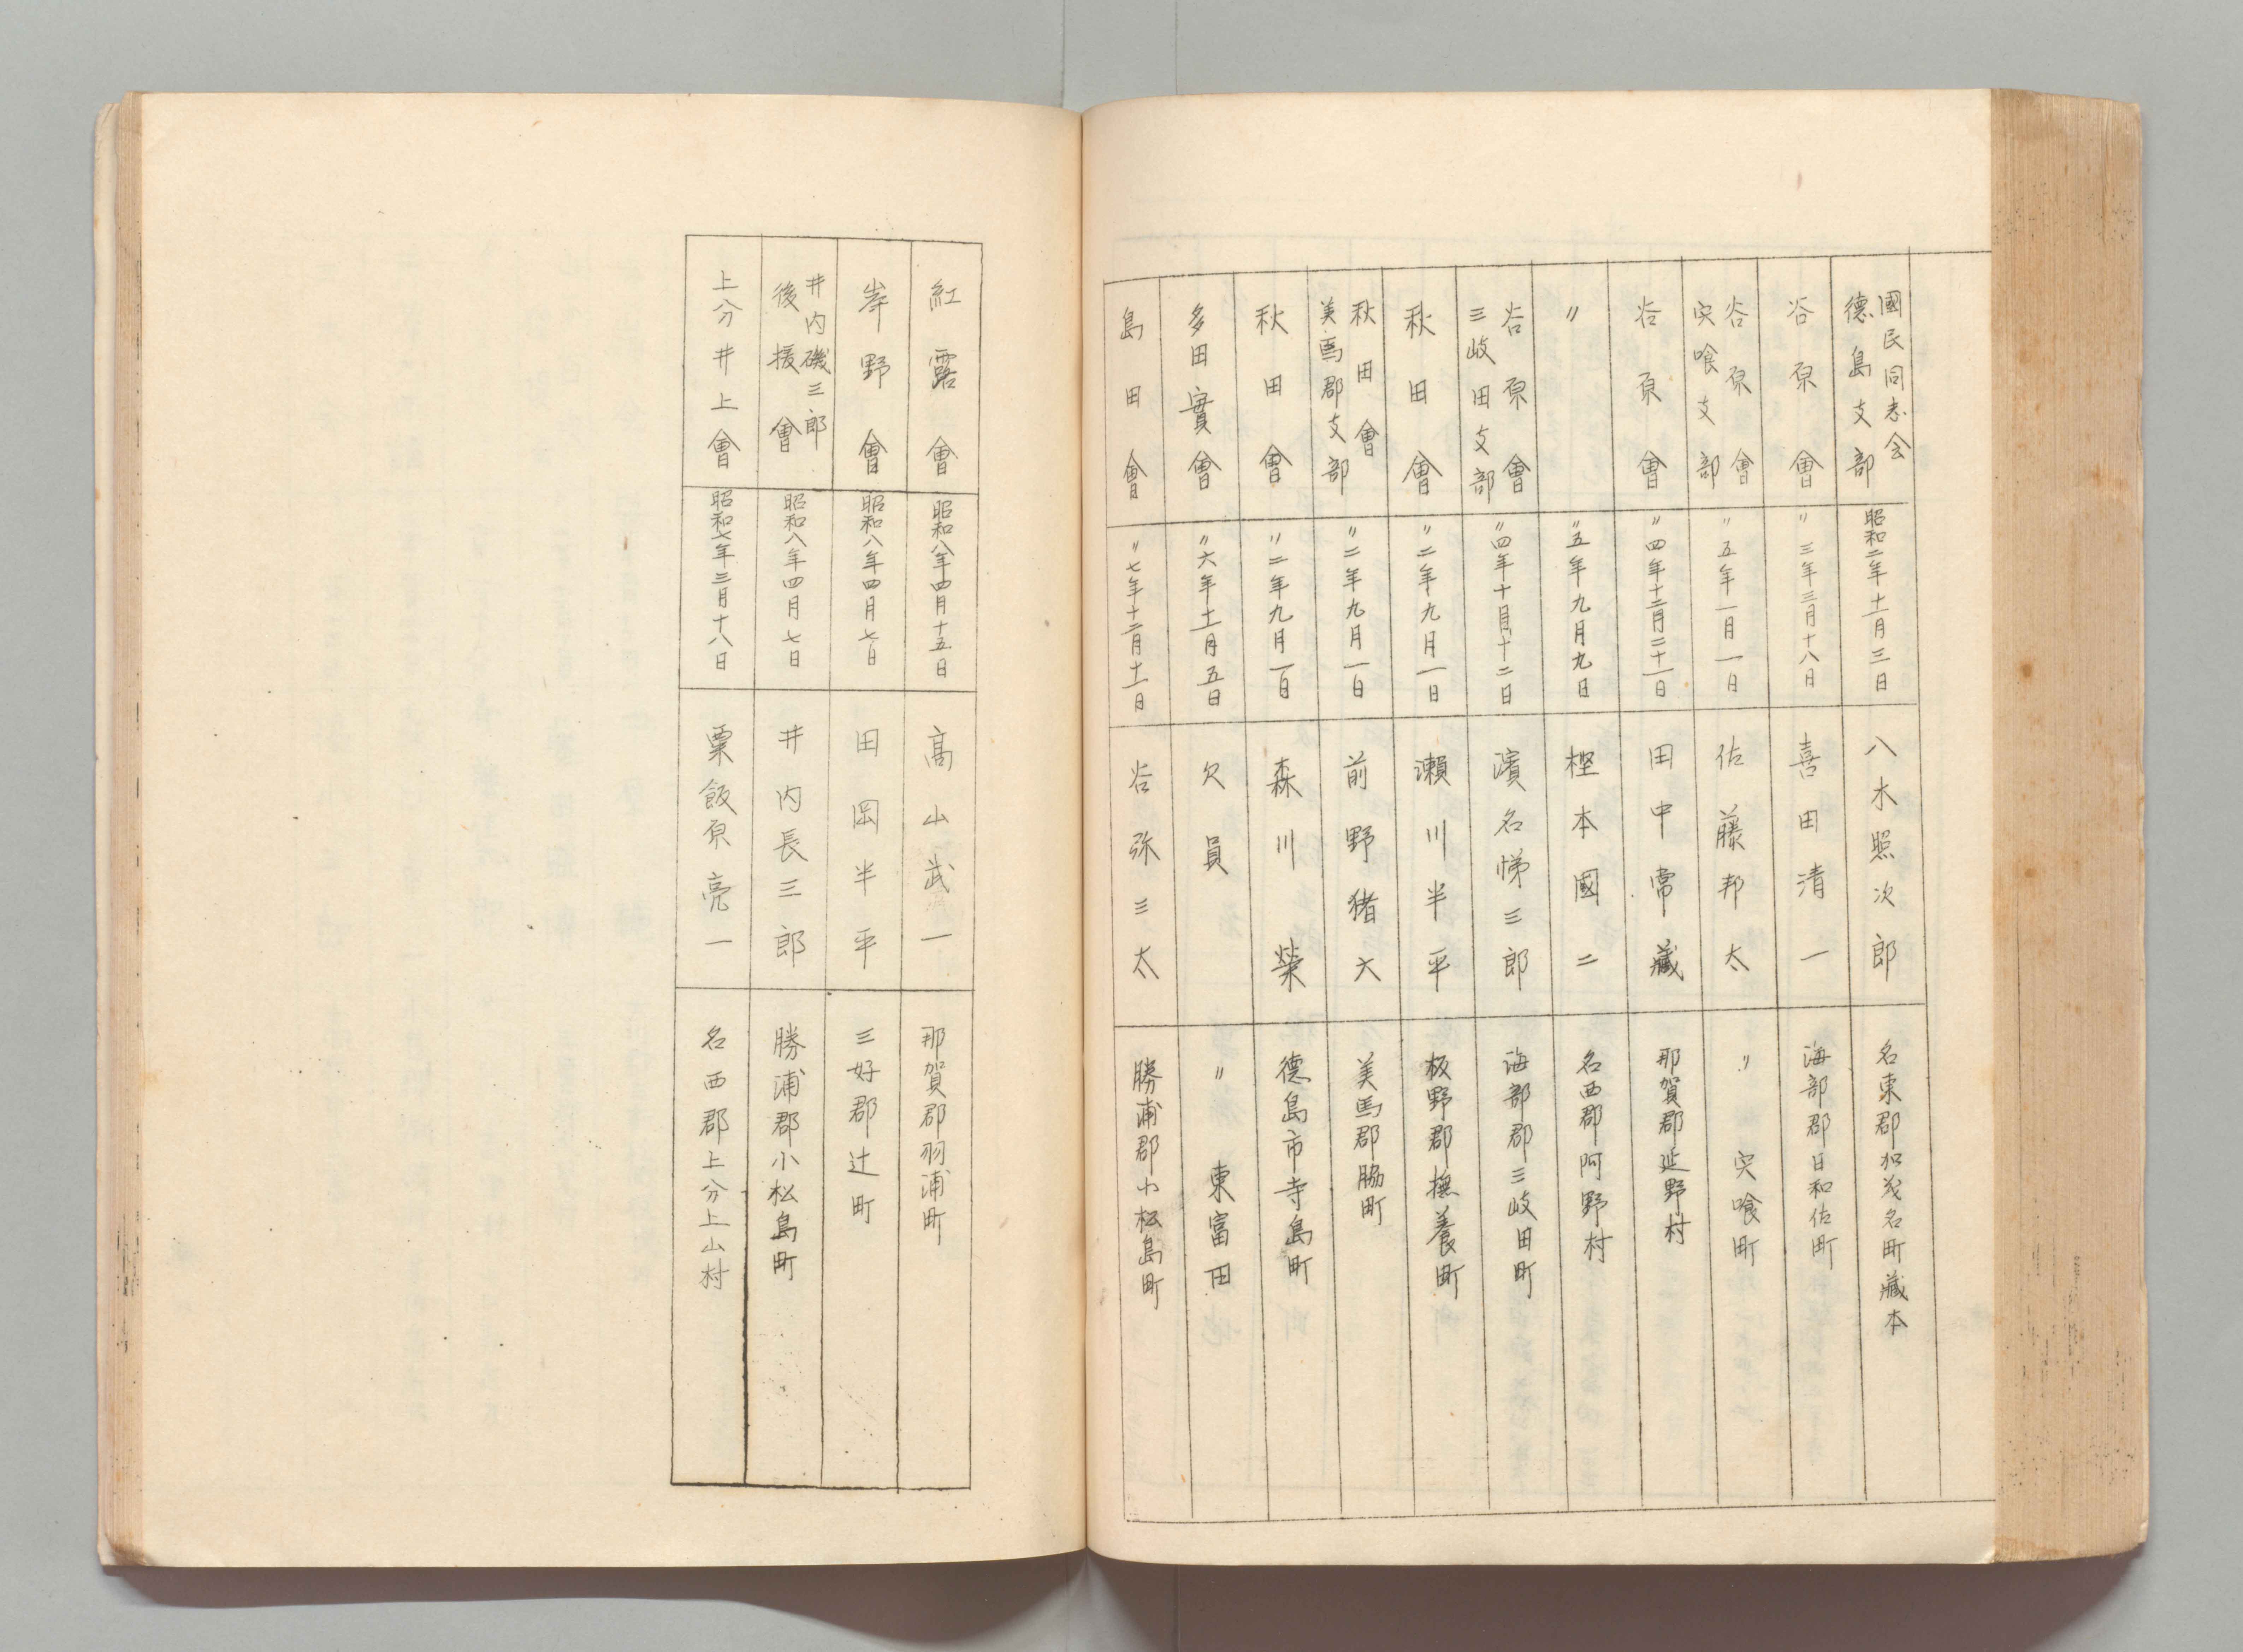 國民同志会
德島支部
昭和二年十一月三日
八木照次郎
名東郡加茂名町藏本
谷原會
〃三年三月十八日
喜田清一
海部郡日和佐町
谷原會
宍喰支部
〃五年一月一日
佐藤邦太
〃宍喰町
谷原會
〃四年十二月二十一日
田中常藏
那賀郡延野村
〃
〃五年九月九日
樫本國二
名西郡阿野村
谷原會
三岐田支部
〃四年十月十二日
濱名悌三郎
海部郡三岐田町
秋田會
〃二年九月一日
瀬川半平
板野郡撫養町
秋田會
美馬郡支部
〃二年九月一日
前野猪六
美馬郡脇町
秋田會
〃二年九月一日
森川榮
德島市寺島町
多田實會
〃六年十一月五日
欠員
〃東富田
島田會
〃七年十二月十一日
谷弥三太
勝浦郡小松島町
紅露會
昭和八年四月十五日
高山武一
那賀郡羽浦町
岸野會
昭和八年四月七日
田岡半平
三好郡辻町
井内磯三郎
後援會
昭和八年四月七日
井内長三郎
勝浦郡小松島町
上分井上會
昭和七年三月十八日
粟飯原亮一
名西郡上分上山村